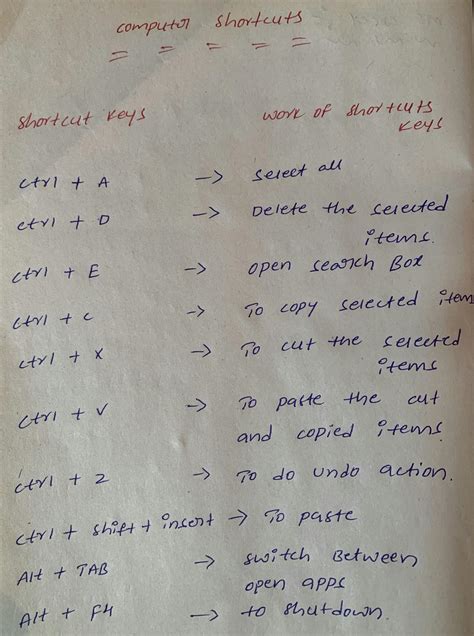 computer shortcuts
= = = = =
shortcut keys work of shortcuts
keys
ctrl + A -> select all
ctrl + D -> Delete the selected
items.
ctrl + E -> open search Box
ctrl + c -> To copy selected item
ctrl + x -> To cut the selected
items
ctrl + v -> To paste the cut
and copied items
ctrl + z -> To do undo action.
ctrl + shift + insert -> To paste
Alt + TAB -> switch Between
open apps
Alt + F4 -> to shutdown.